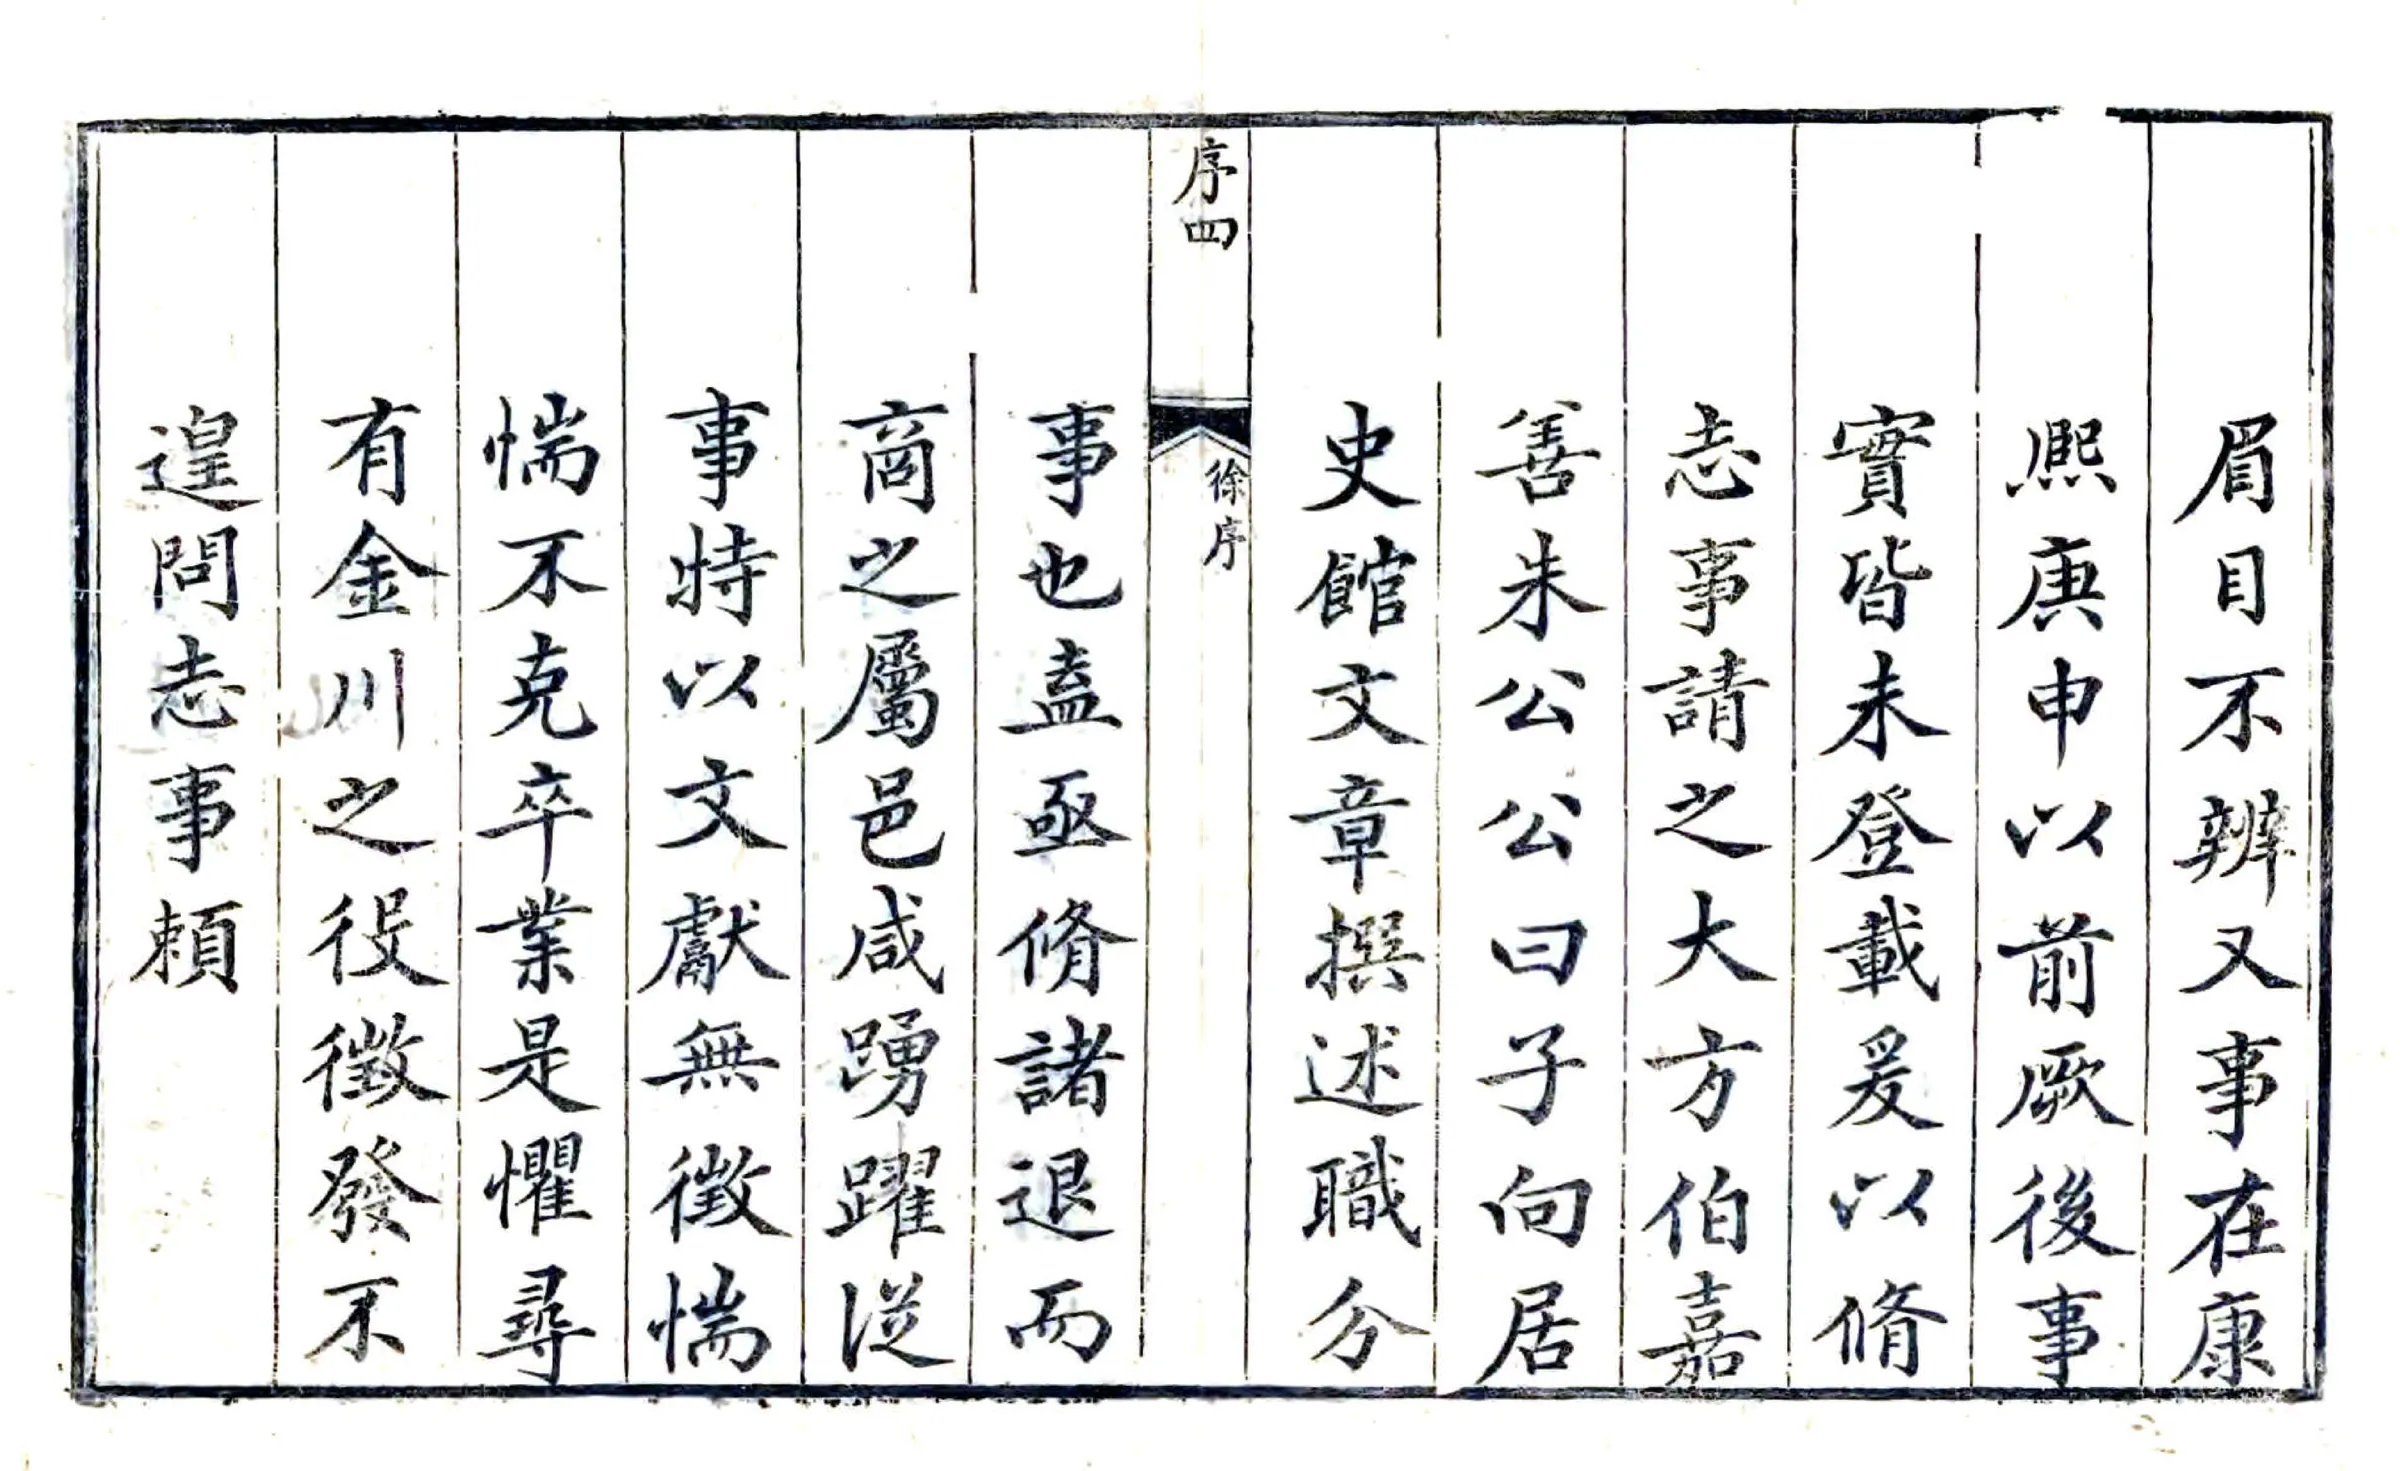 眉目不辨又事在康
熈庚申以前厥後事
實皆未登載爰以脩
志事請之大方伯嘉
善朱公公曰子向居
史館文章撰述職分
序四
徐序
事也盍亟脩諸退而
商之屬邑咸踴躍從
事特以文獻無徵惴
惴不克卒業是懼尋
有金川之役徵發不
遑問志事頼